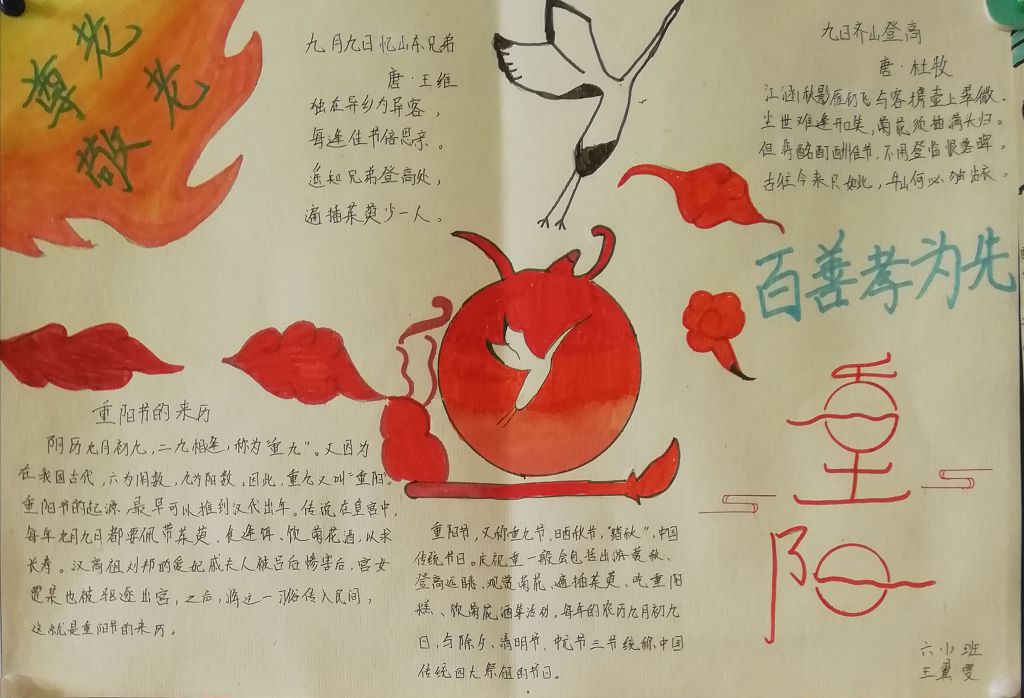 尊老
敬老
九月九日忆山东兄弟
唐·王维
独在异乡为异客，
每逢佳节倍思亲。
遥知兄弟登高处，
遍插茱萸少一人。
九日齐山登高
唐·杜牧
江涵秋影雁初飞与客携壶上翠微。
尘世难逢开口笑，菊花须插满头归。
但将酩酊酬佳节，不用登临恨落晖。
古往今来只如此，牛山何必独沾衣。
百善孝为先
重阳
重阳节的来历
阴历九月初九，二九相逢，称为"重九"。又因为
在我国古代，六为阴数，九为阳数，因此，重九又叫"重阳"。
重阳节的起源，最早可以推到汉代出年。传说在皇宫中，
每年九月九日都要佩带茱萸、食逢饵、饮菊花酒，以求
长寿。汉高祖刘邦的爱妃戚夫人被吕后惨害后，宫女
贾某也被驱逐出宫，之后，将这一习俗传入民间，
这就是重阳节的来历。
重阳节，又称重九节、晒秋节，"踏秋"，中国
传统节日。庆祝重一般会包括出游赏秋、
登高远眺、观赏菊花、遍插茱萸、吃重阳
糕、饮菊花酒等活动，每年的农历九月初九
日，与除夕、清明节、中元节三节统称中国
传统四大祭祖的节日。
六小班
王雯